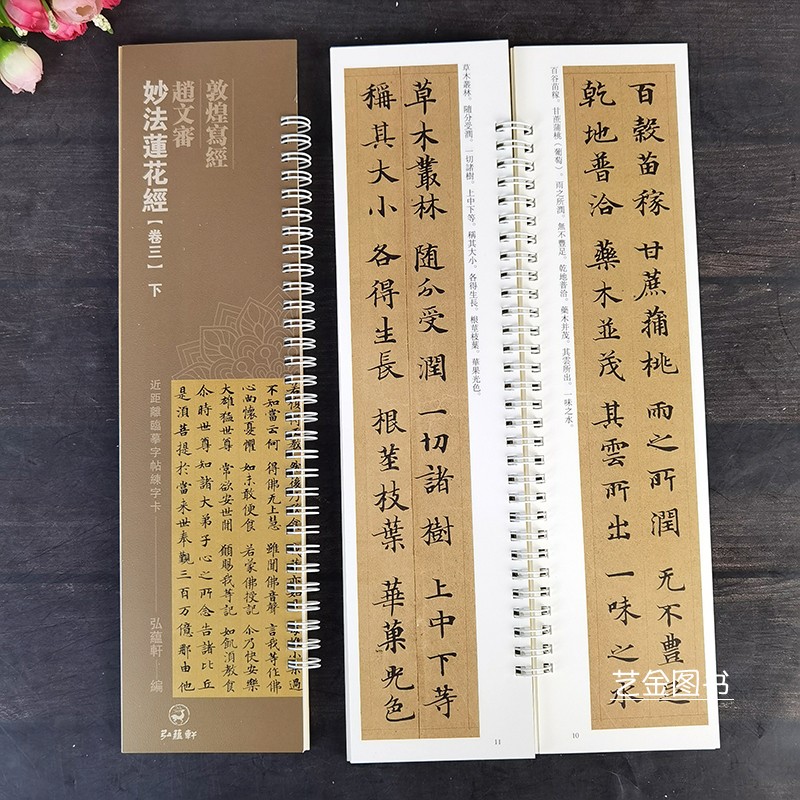 敦煌寫經
趙文審
妙法蓮花經【卷三】下
近距離臨摹字帖練字卡
弘蘊軒 編
不知當云何 得佛无上慧 雖聞佛音聲 言我等作佛
心尚懷憂懼 如未敢便食 若蒙佛授記 尒乃快安樂
大雄猛世尊 常欲安世閒 願賜我等記 如飢湏教食
尒時世尊知諸大弟子心之所念告諸比丘
是湏菩提於當来世奉覲三百万億那由他
弘蘊軒
百穀苗稼 甘蔗蒱桃 雨之所潤 无不豐
乾地普洽 藥木並茂 其雲所出 一味之水
百谷苗稼。甘蔗蒲桃（葡萄）。雨之所潤。無不豐足。乾地普洽。藥木并茂。其雲所出。一味之水。
10
草木叢林 随分受潤 一切諸樹 上中下等
稱其大小 各得生長 根莖枝葉 華菓光色
草木叢林。隨分受潤。一切諸樹。上中下等。稱其大小。各得生長。根莖枝葉。華果光色。
11
艺金图书